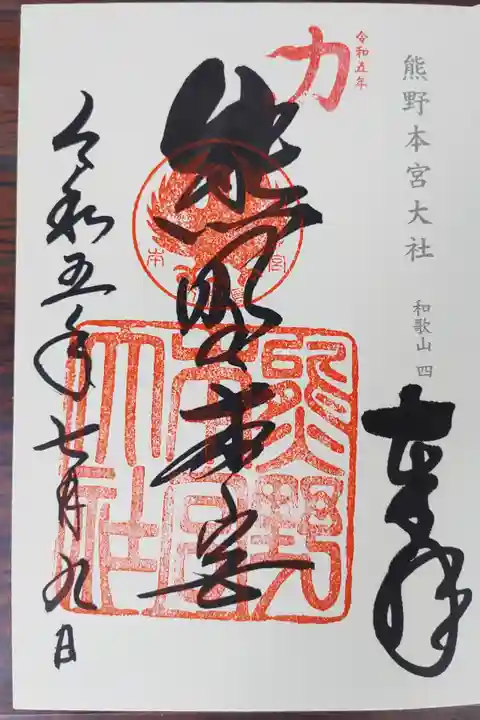 熊野本宮大社
和歌山 四
奉拝
令和五年
力
熊野本宮
本宮
熊野本宮大社
令和五年七月九日